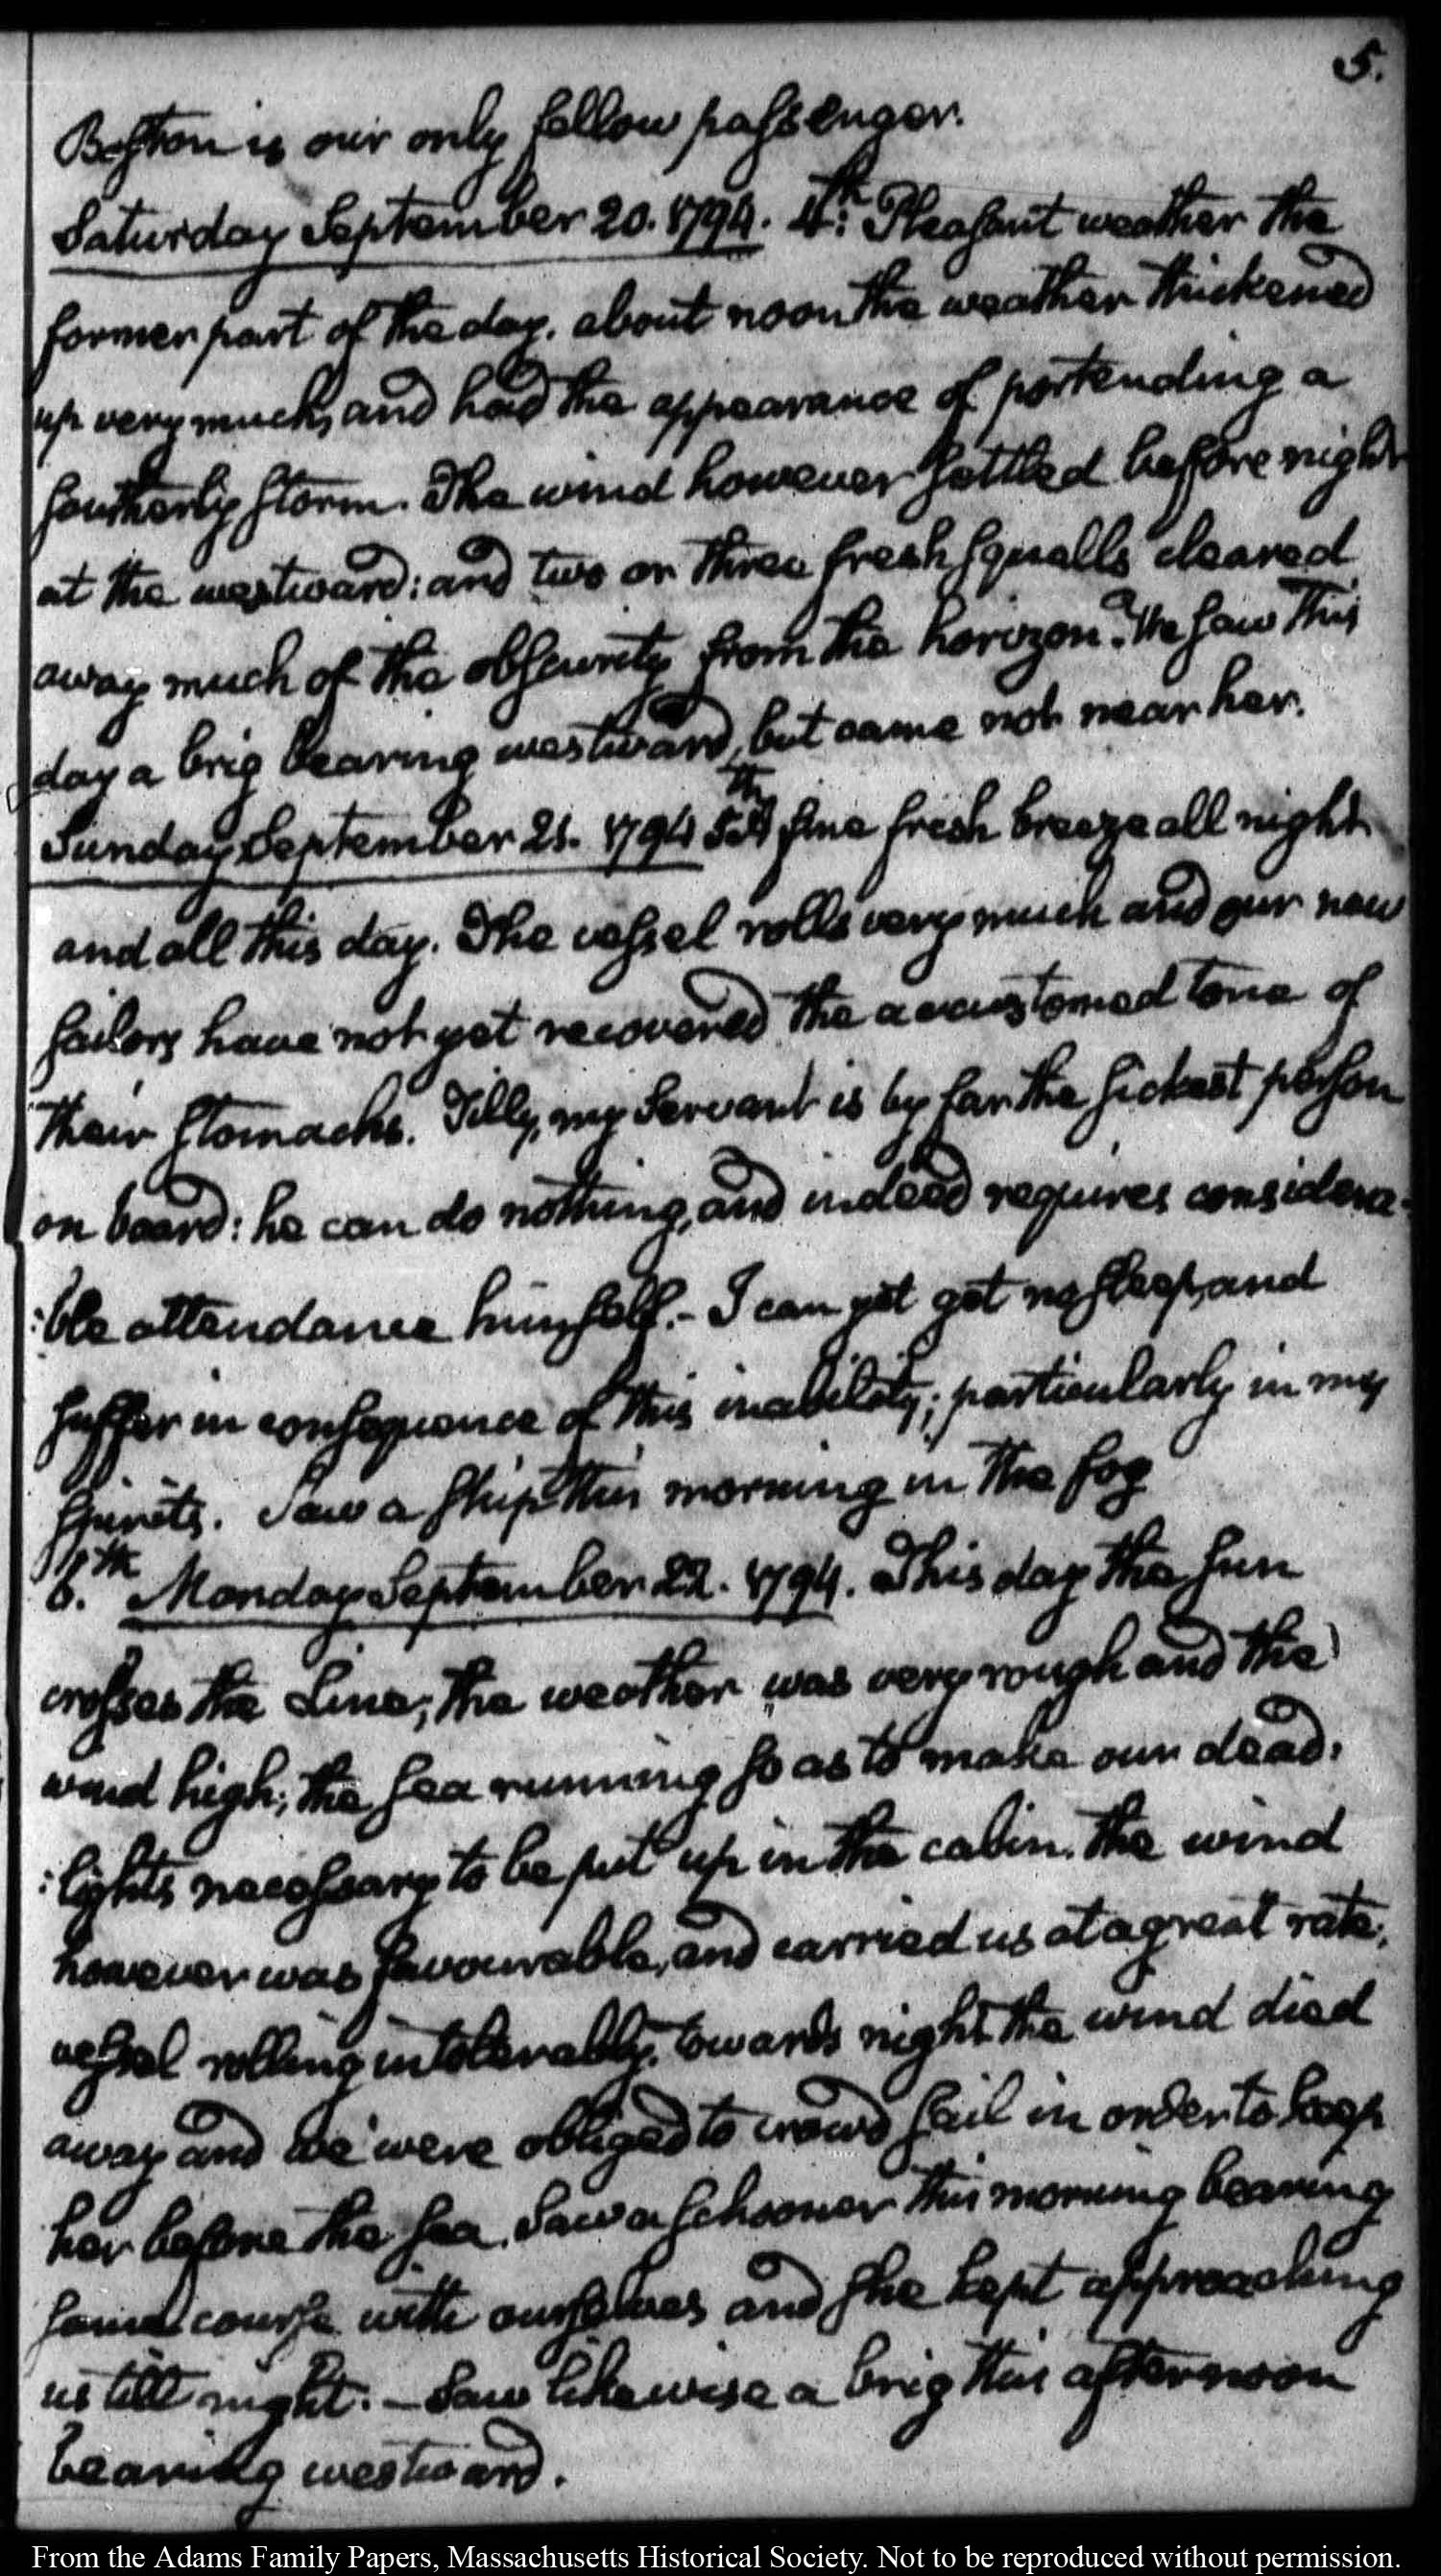 5.
Boston is our only fellow passenger.
Saturday September 20. 1794. 4.th Pleasant weather the
former part of the day. about noon the weather thickened
up very much, and had the appearance of portending a
southerly storm. The wind however settled before night
at the westward: and two or three fresh squalls cleared
away much of the obscurity from the horizon. We saw this
day a brig bearing westward, but came not near her.
Sunday September 21. 1794 5th A fine fresh breeze all night
and all this day. The vessel rolls very much and our new
sailors have not yet recovered the accustomed tone of
their stomachs. Tilly, my Servant is by far the sickest person
on board: he can do nothing, and indeed requires considera-
:ble attendance himself.- I can yet get no sleep, and
suffer in consequence of this inability; particularly in my
spirits. Saw a ship this morning in the fog
6.th Monday September 22. 1794. This day the Sun
crosses the Line; the weather was very rough and the
wind high; the sea running so as to make our dead:
:lights necessary to be put up in the cabin. the wind
however was favourable, and carried us at a great rate;
vessel rolling intolerably. towards night the wind died
away and we were obliged to crowd sail in order to keep
her before the sea. Saw a schooner this morning bearing
same course with ourselves and she kept approaching
us till night. - Saw likewise a brig this afternoon
bearing westward.
From the Adams Family Papers, Massachusetts Historical Society. Not to be reproduced without permission.